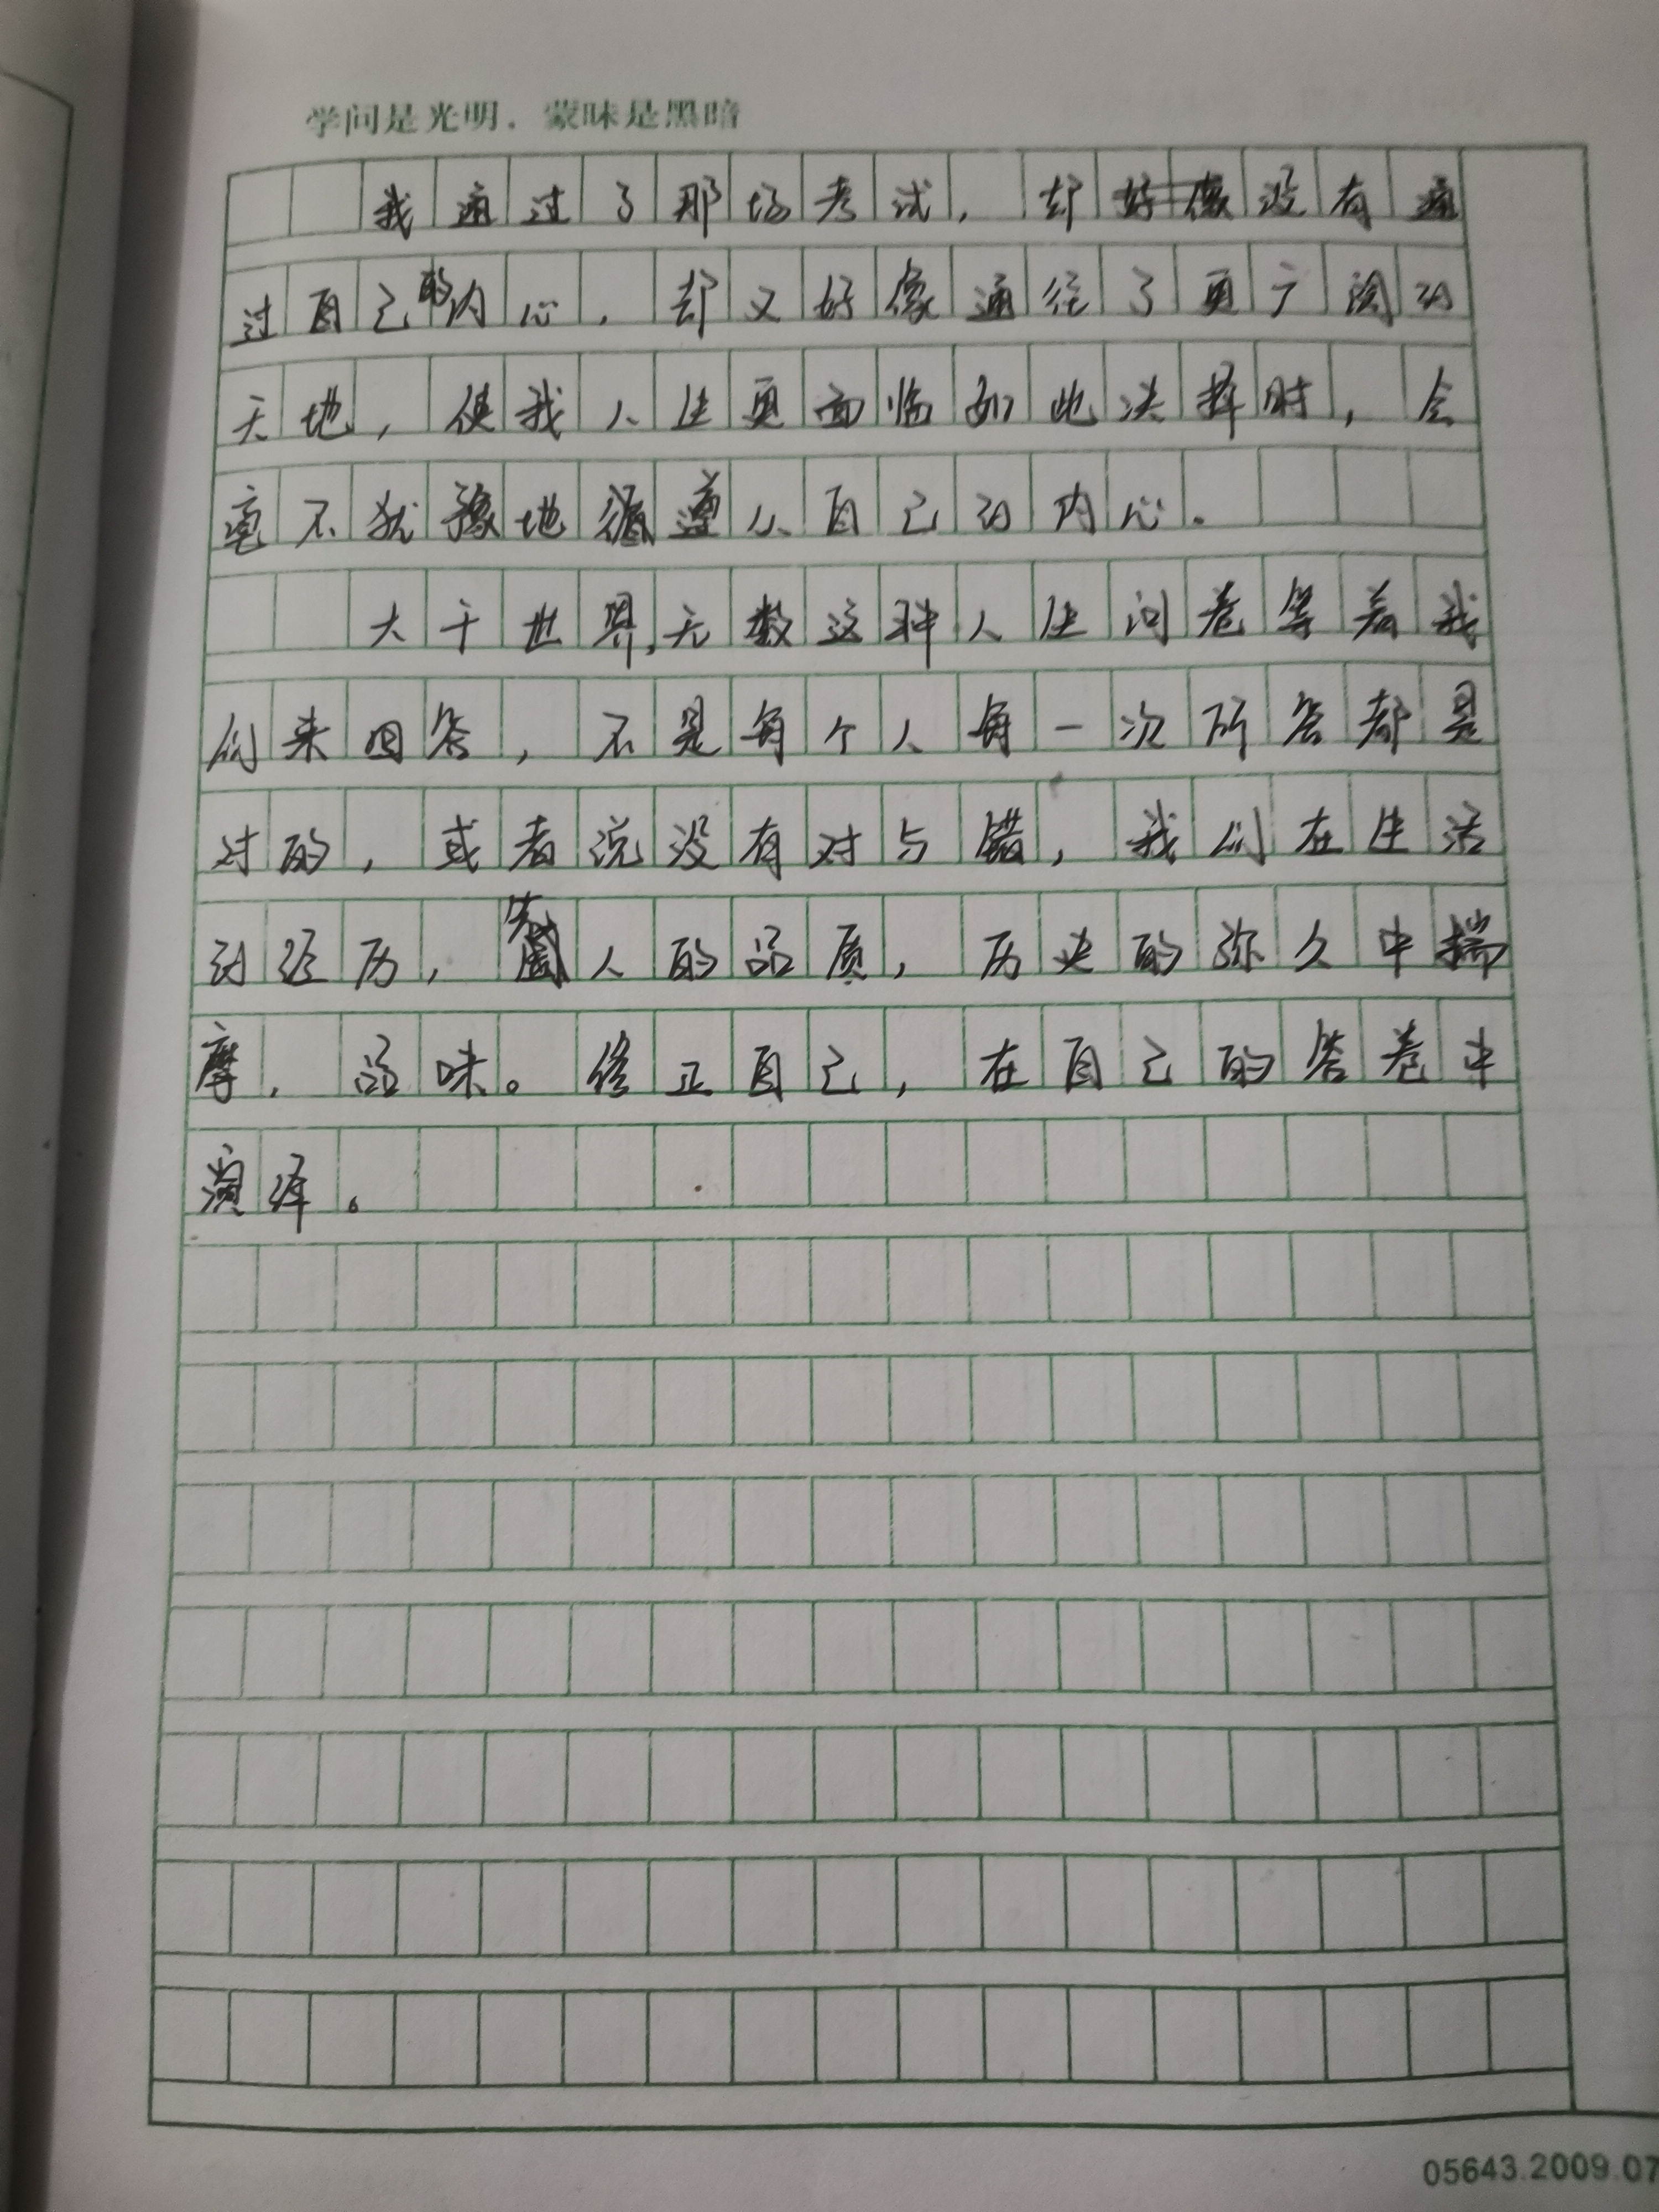 学问是光明，蒙昧是黑暗
我通过了那场考试，却没有通
过自己的内心，却又好像通往了更广阔的
天地，使我人生更面临如此决择时，会
毫不犹豫地遵从自己的内心。
大千世界，无数这种人生问卷等着我
们来回答，不是每个人每一次所答都是
对的，或者说没有对与错，我们在生活
的经历，先人的品质，历史的弥久中揣
摩，品味。修正自己，在自己的答卷中
演绎。
05643.2009.07